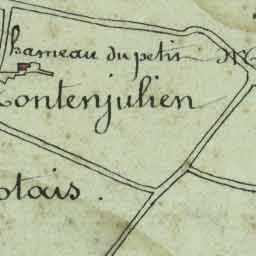 hameau du petit
Montenjulien
otais.